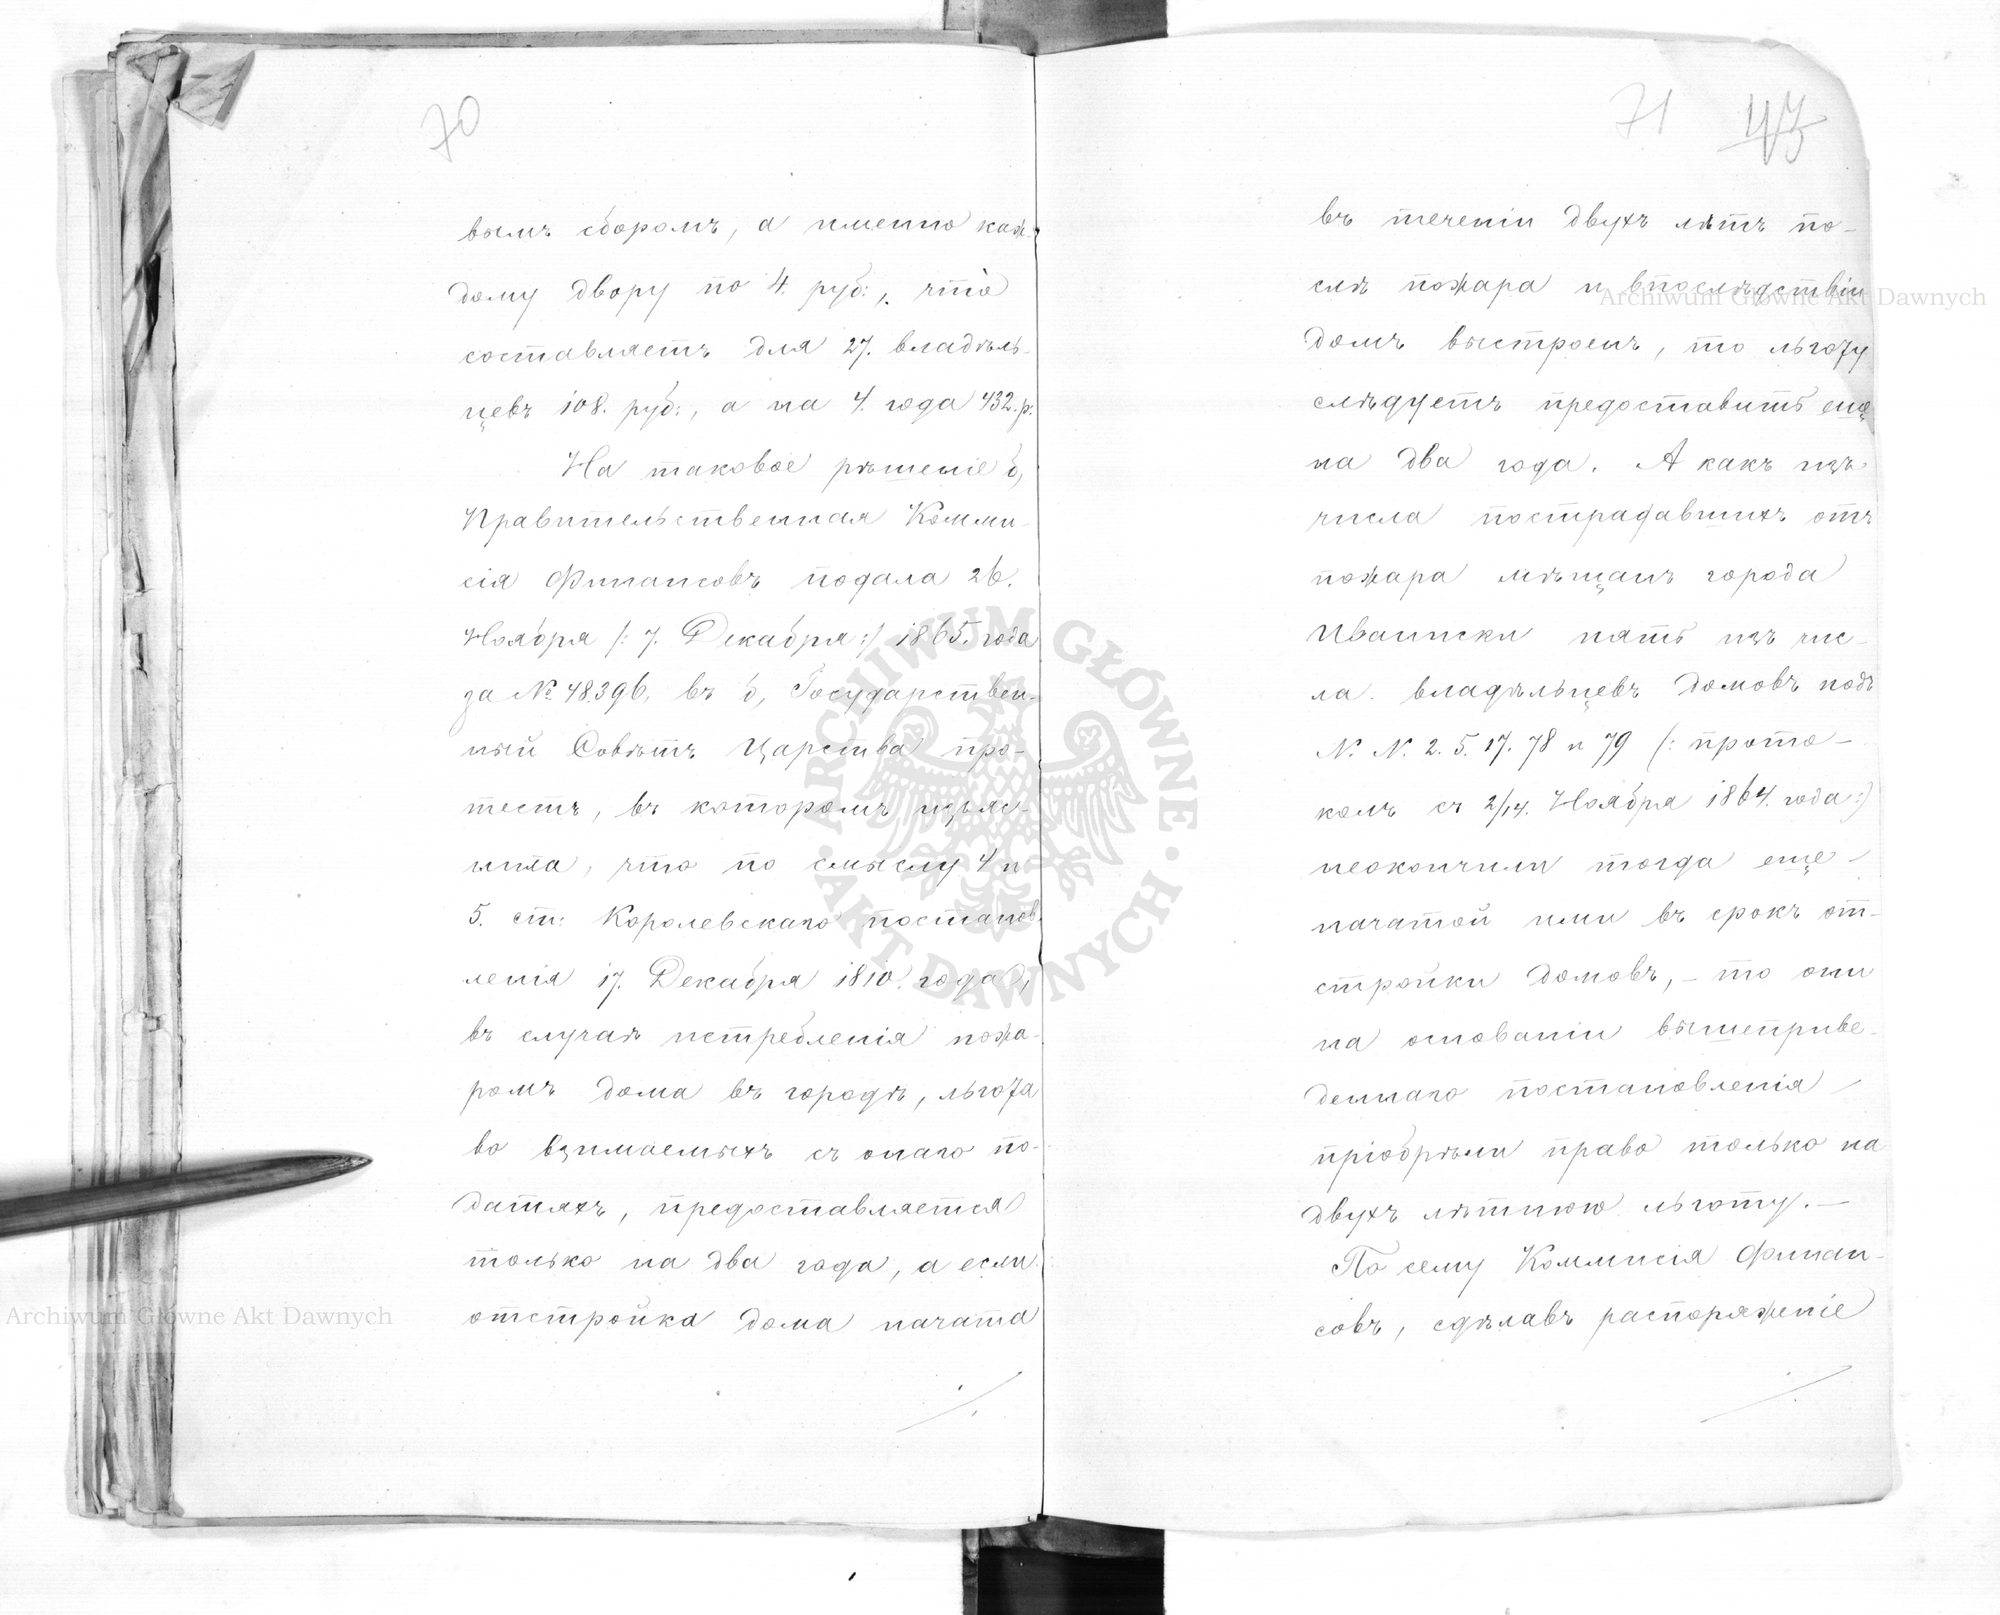 70
вымъ сборомъ, а именно каж-
дому двору по 4. руб:, что
составляетъ для 27. владѣль-
цевъ 108. руб:, а на 4. года 432. р:
На таковое рѣшеніе б,
Правительственная Комми-
сія Финансовъ подала 26.
Ноября /: 7. Декабря :/ 1865. года
за № 48396, въ б, Государствен-
ный Совѣтъ Царства про-
тестъ, въ которомъ изъяс-
нила, что по смыслу 4 и
5. ст: Королевскаго постанов-
ленія 17. Декабря 1810. года,
въ случаѣ истребленія пожа-
ромъ дома въ городѣ, льгота
во взимаемыхъ съ онаго по-
датяхъ, предоставляется
только на два года, а если
отстройка дома начата
71 47
въ теченіи двухъ лѣтъ по-
слѣ пожара и впослѣдствіи
домъ выстроенъ, то льготу
слѣдуетъ предоставить еще
на два года. А какъ изъ
числа пострадавшихъ отъ
пожара мѣщанъ города
Иваниски пять изъ чис-
ла владѣльцевъ домовъ подъ
N. N. 2. 5. 17. 78 и 79 /: прото-
колъ съ 2/14. Ноября 1864. года :/
неокончили тогда еще
начатой ими въ срокъ от-
стройки домовъ, – то они
на основаніи вышеприве-
деннаго постановленія
пріобрѣли право только на
двухъ лѣтнюю льготу. –
По сему Коммисія Финан-
совъ, сдѣлавъ распоряженіе
Archiwum Główne Akt Dawnych
Archiwum Główne Akt Dawnych
ARCHIWUM GŁÓWNE · AKT DAWNYCH ·